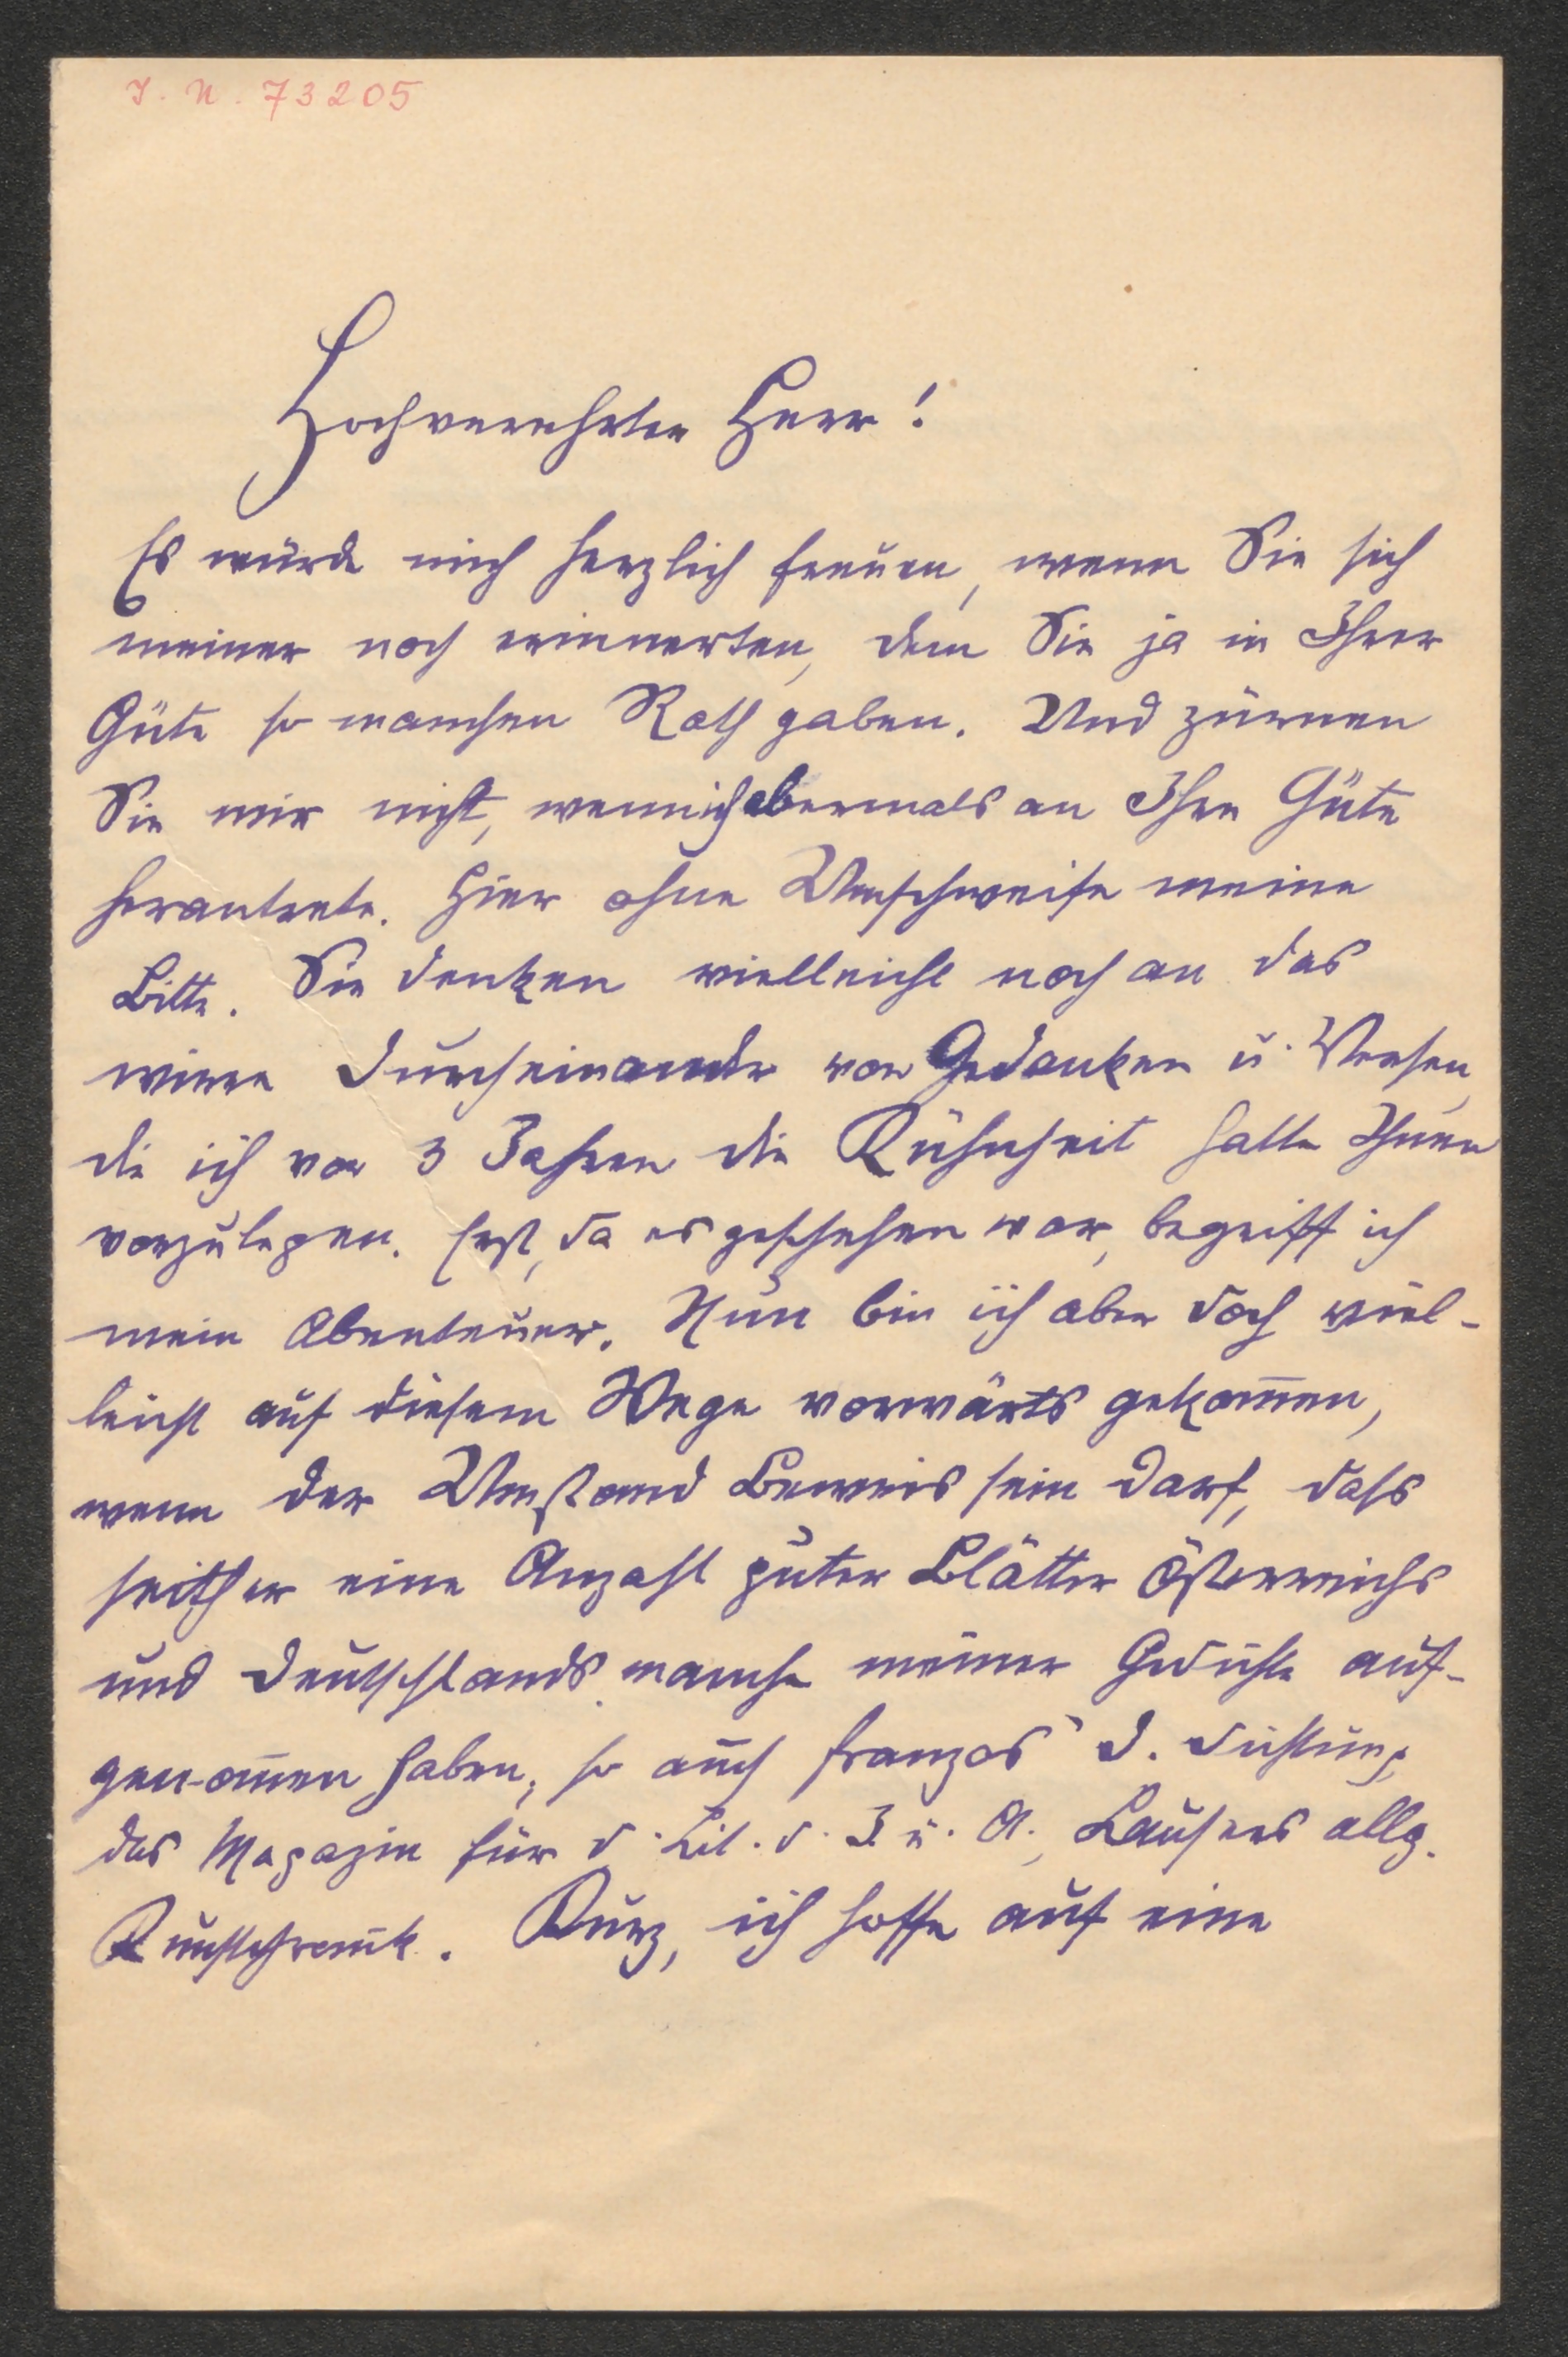 I. N. 73205
Hochverehrter Herr!
Es würde mich herzlich freuen, wenn Sie sich
meiner noch erinnerten, dem Sie ja in Ihrer
Güte so manchen Rath gaben. Und zürnen
Sie mir nicht, wenn ich abermals an Ihre Güte
herantrete. Hier ohne Umschweife meine
Bitte. Sie denken vielleicht noch an das
wirre Durcheinander von Gedanken u. Versen,
die ich vor 3 Jahren die Kühnheit hatte Ihnen
vorzulegen. Erst, da es geschehen war, begriff ich
mein Abenteuer. Nun bin ich aber doch viel-
leicht auf diesem Wege vorwärts gekom̄en,
wenn der Umstand Beweis sein darf, dass
seither eine Anzahl guter Blätter Österreichs
und Deutschlands manche meiner Gedichte auf-
genom̄en haben, so auch Franzos' D. Dichtung,
das Magazin für d. Lit. d. I. u. A., Lausers allg.
Kunstchronik. Kurz, ich hoffe auf eine